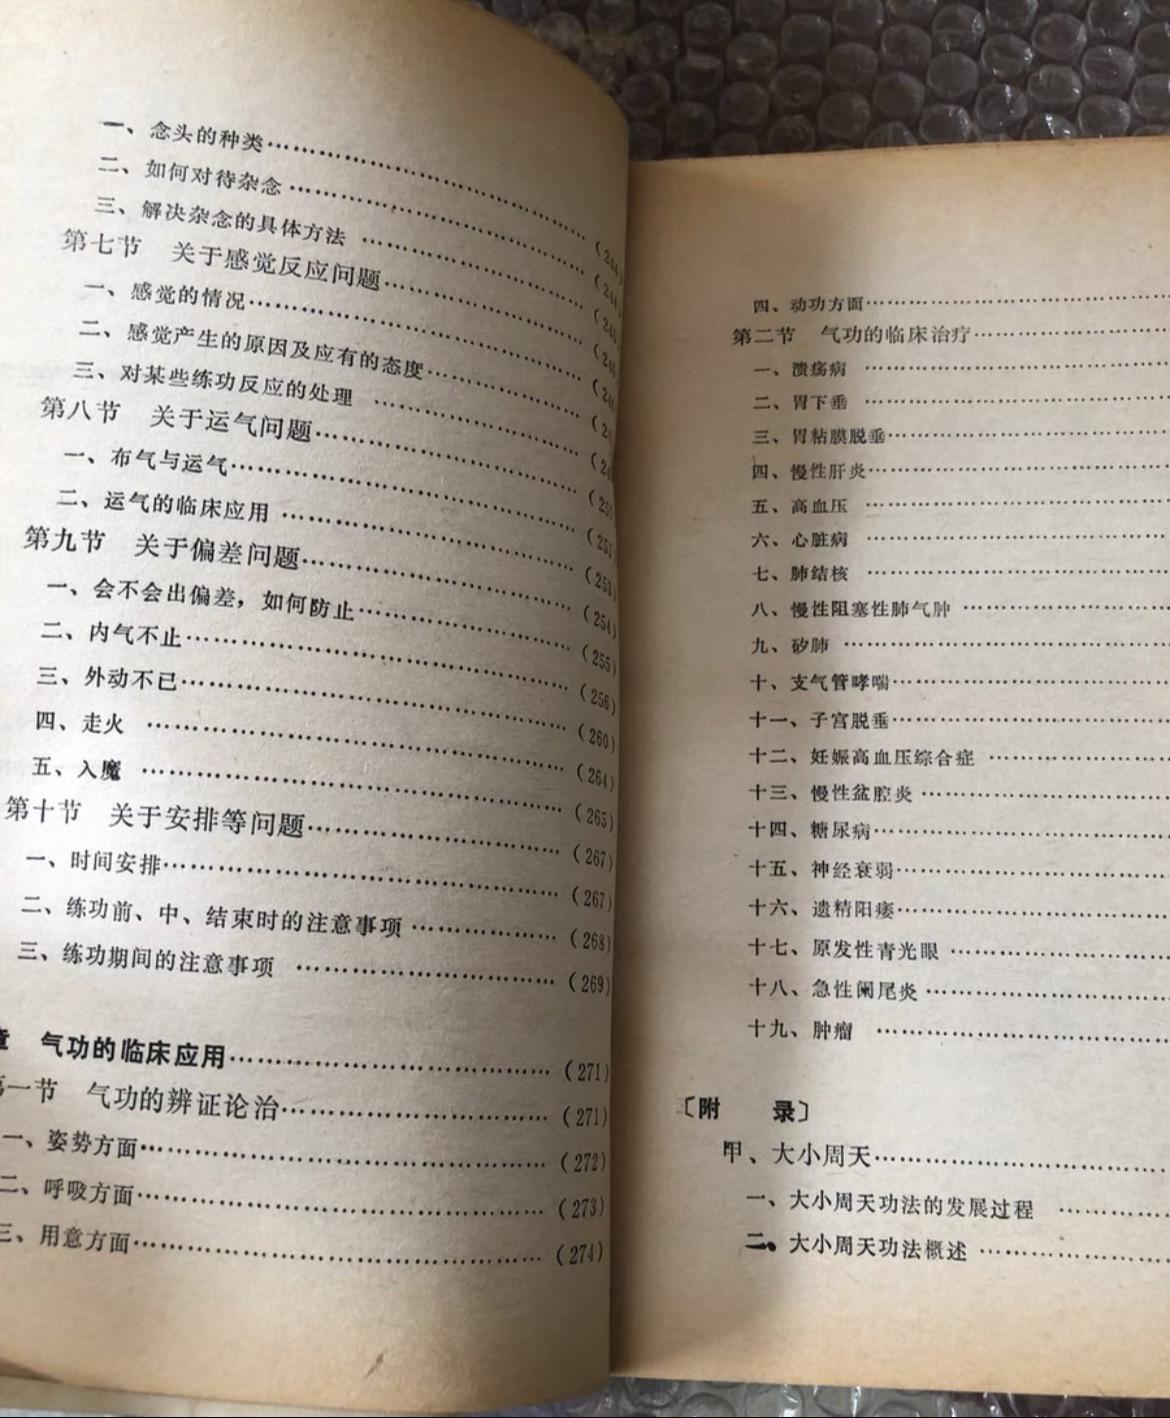 一、念头的种类……………………………………(244)
二、如何对待杂念……………………………(244)
三、解决杂念的具体方法……………………(245)
第七节　关于感觉反应问题……………………(246)
一、感觉的情况………………………………
二、感觉产生的原因及应有的态度……………
三、对某些练功反应的处理……………………
第八节　关于运气问题…………………………
一、布气与运气………………………………(251)
二、运气的临床应用…………………………(253)
第九节　关于偏差问题…………………………(254)
一、会不会出偏差，如何防止………………(255)
二、内气不止…………………………………(256)
三、外动不已…………………………………(260)
四、走火………………………………………(264)
五、入魔………………………………………(265)
第十节　关于安排等问题………………………(267)
一、时间安排…………………………………(267)
二、练功前、中、结束时的注意事项…………(268)
三、练功期间的注意事项……………………(269)
章　气功的临床应用……………………………(271)
第一节　气功的辨证论治………………………(271)
一、姿势方面…………………………………(272)
二、呼吸方面…………………………………(273)
三、用意方面…………………………………(274)
四、动功方面……………………………
第二节　气功的临床治疗…………………
一、溃疡病………………………………
二、胃下垂………………………………
三、胃粘膜脱垂…………………………
四、慢性肝炎……………………………
五、高血压………………………………
六、心脏病………………………………
七、肺结核………………………………
八、慢性阻塞性肺气肿…………………
九、矽肺…………………………………
十、支气管哮喘…………………………
十一、子宫脱垂…………………………
十二、妊娠高血压综合症………………
十三、慢性盆腔炎………………………
十四、糖尿病……………………………
十五、神经衰弱…………………………
十六、遗精阳痿…………………………
十七、原发性青光眼……………………
十八、急性阑尾炎………………………
十九、肿瘤………………………………
〔附　　录〕
甲、大小周天……………………………
一、大小周天功法的发展过程…………
二、大小周天功法概述…………………